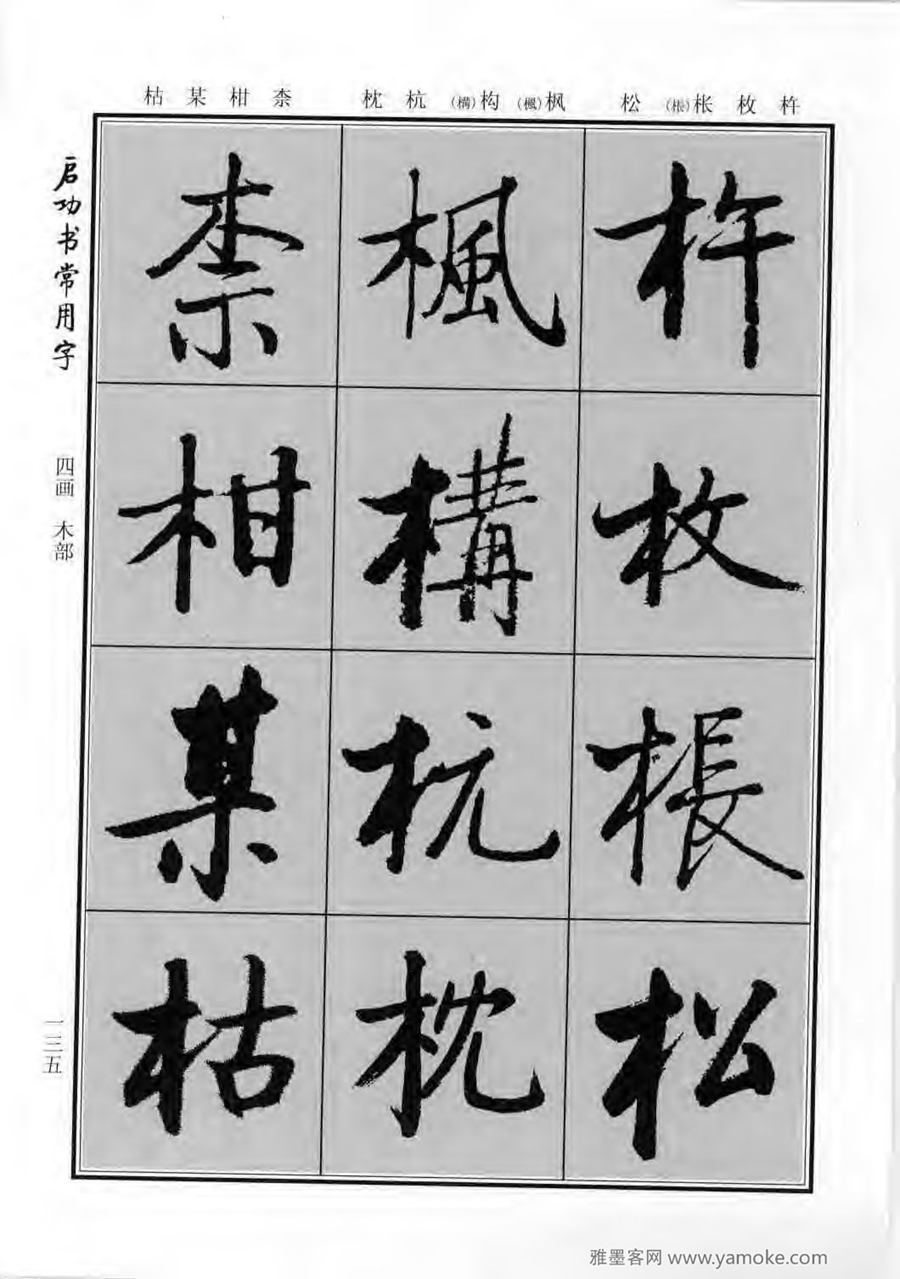 杵 枚 枨(棖) 松
枫(楓) 构(構) 杭 枕
柰 柑 某 枯
杵枚棖松
楓構杭枕
柰柑某枯
启功书常用字
四画 木部
一三五
雅墨客网 www.yamoke.com